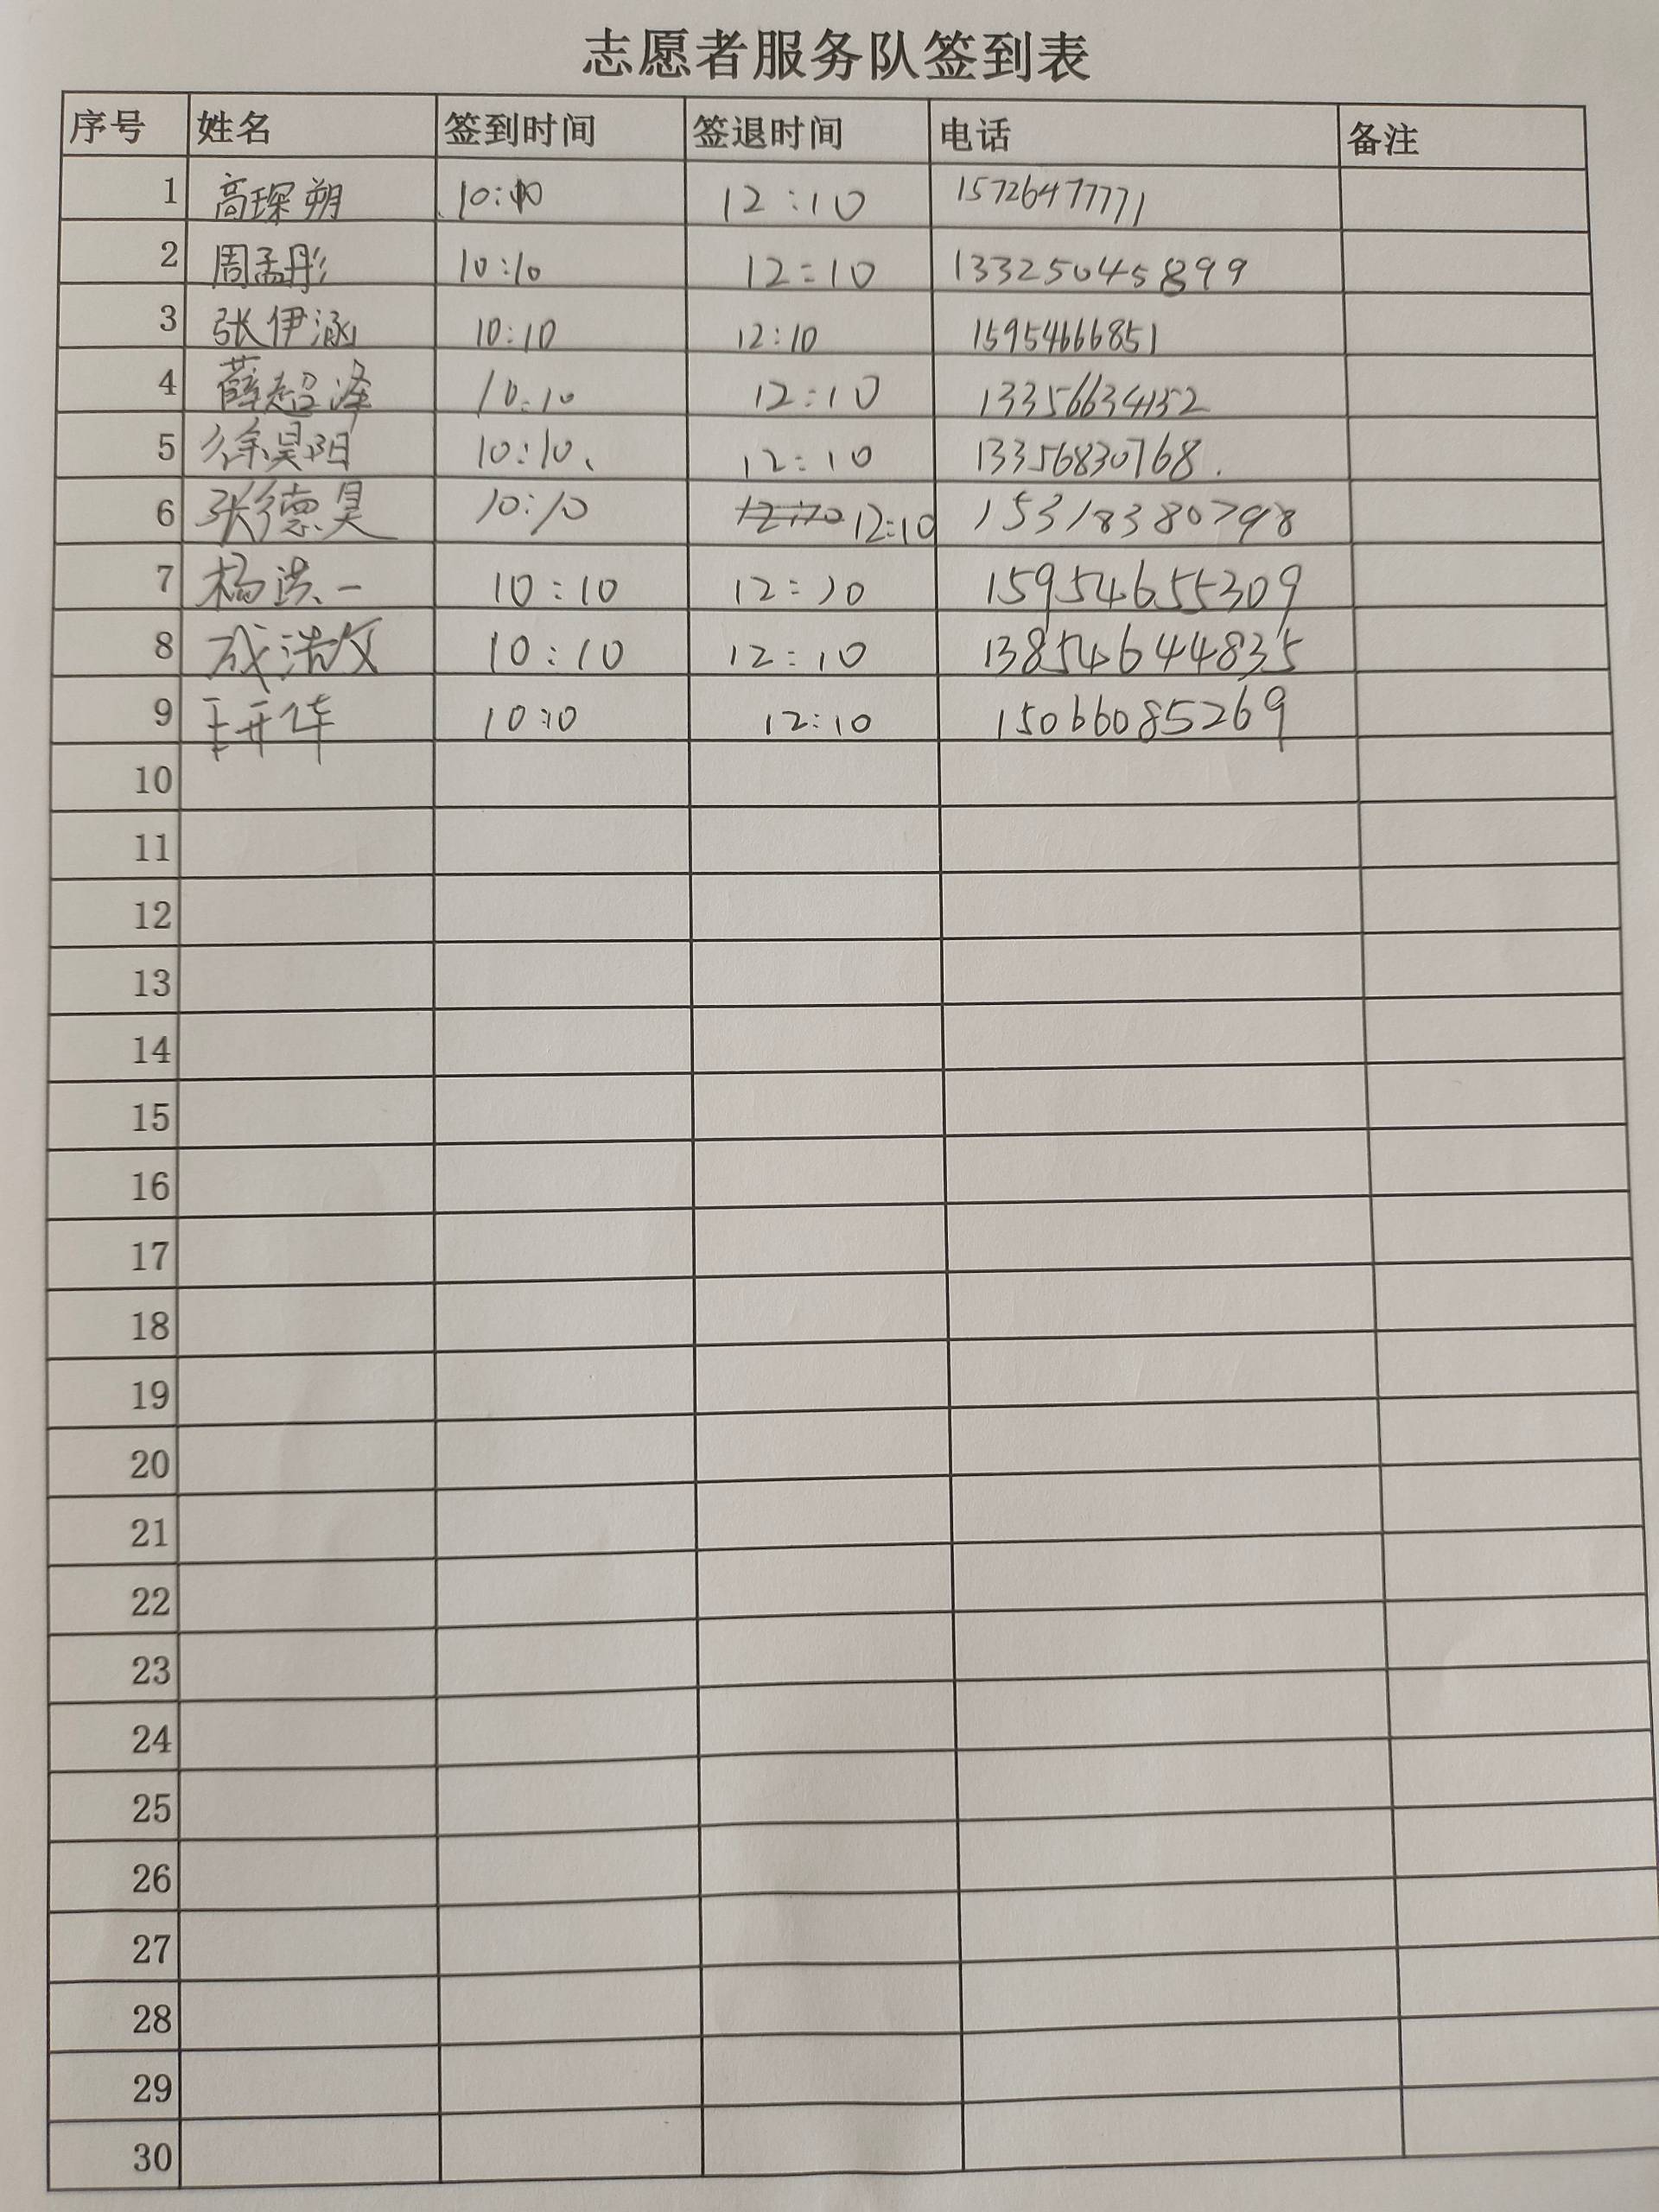 志愿者服务队签到表
序号 姓名 签到时间 签退时间 电话 备注
1 高琛朔 10:10 12:10 15726477771
2 周孟彤 10:10 12:10 13325045899
3 张伊涵 10:10 12:10 15954666851
4 薛超泽 10:10 12:10 13356634152
5 徐昊阳 10:10、 12:10 13356830768.
6 张德昊 10:10 12:10 12:10 15318380798
7 杨洪一 10:10 12:10 15954655309
8 成浩文 10:10 12:10 13854644835
9 王开华 10:10 12:10 15066085269
10
11
12
13
14
15
16
17
18
19
20
21
22
23
24
25
26
27
28
29
30